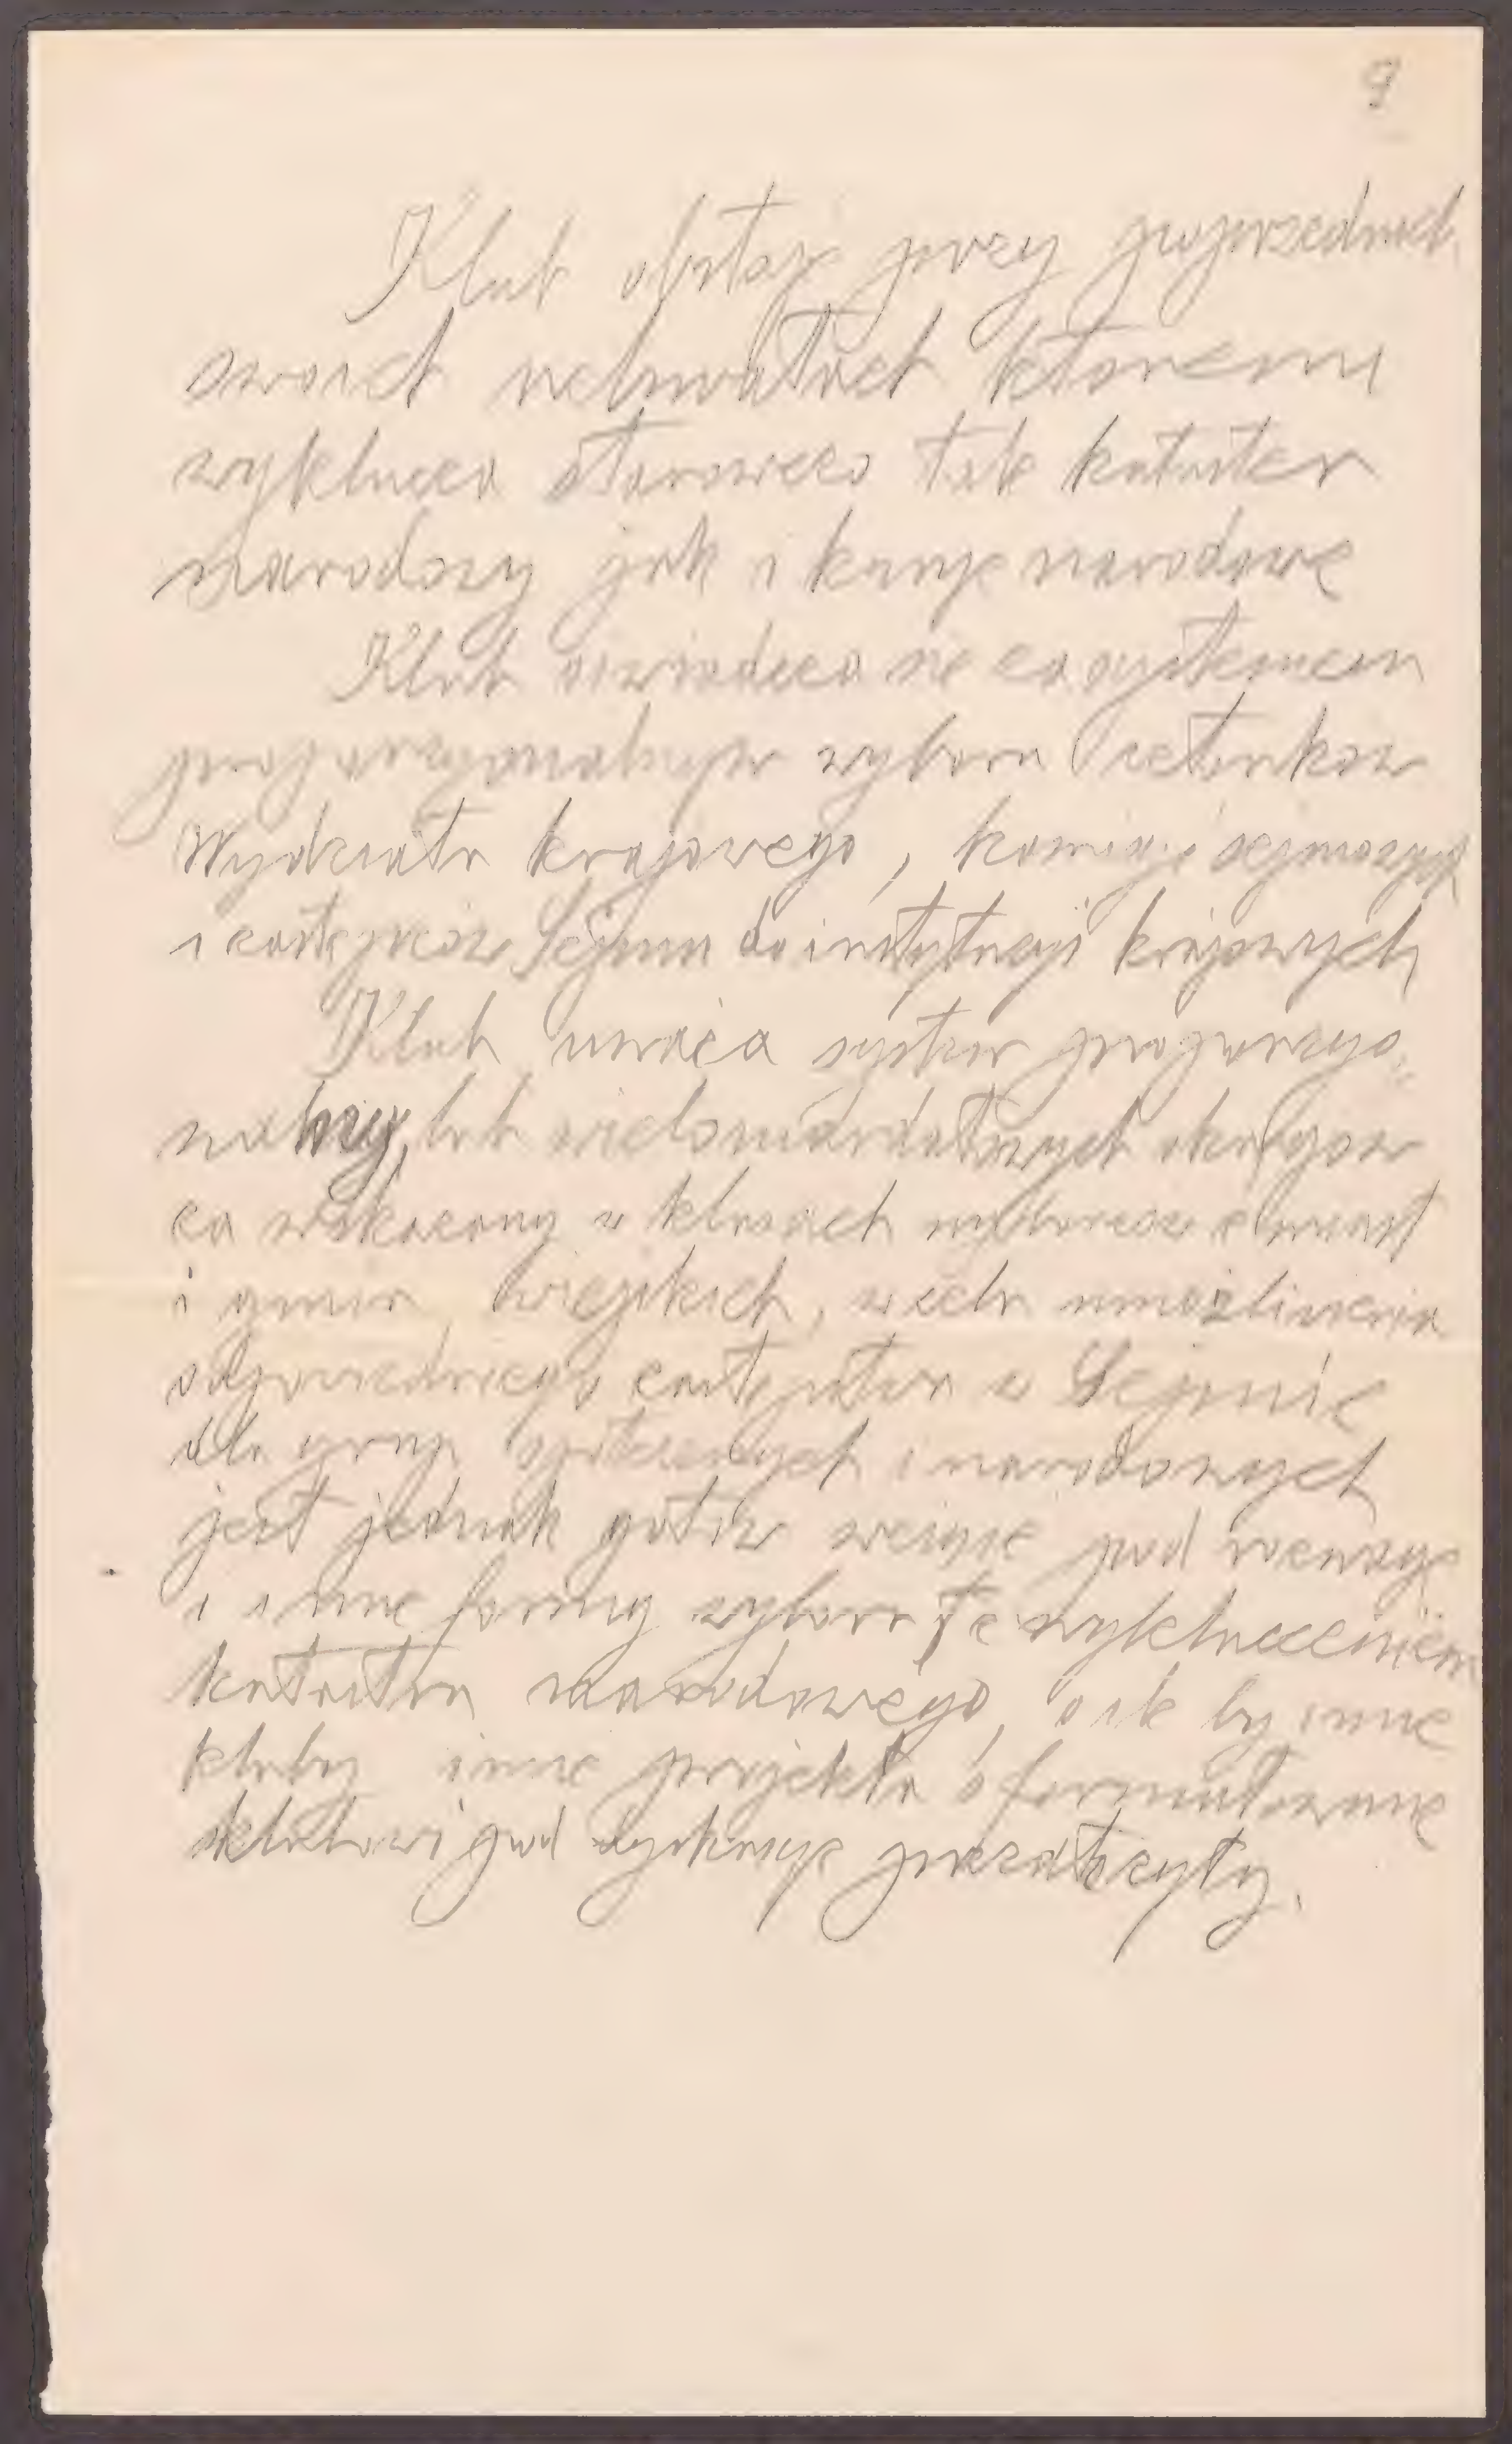 9
Klub obstaje przy poprzednich
swoich uchwałach któremi
wyklucza stanowczo tak kataster
narodowy jak i kurye narodowe
Klub oświadcza się za systemem
proporcyonalnym wyboru członków
Wydziału krajowego, komisyi sejmowych
i zastępców Sejmu do instytucyi krajowych
Klub uważa system proporcyo„
nalny, lub wielomandatowych okręgów
za wskazany w klasach wyborców z miast
i gmin wiejskich, w celu umożliwienia
odpowiedniego zastępstwa w Sejmie
dla grup społecznych i narodowych
jest jednak gotów wziąć pod rozwagę
i inne formy wyboru z wykluczeniem
katastru narodowego, o ile by inne
kluby inne projekta sformułowane
klubowi pod dyskusyę przedłożyły.